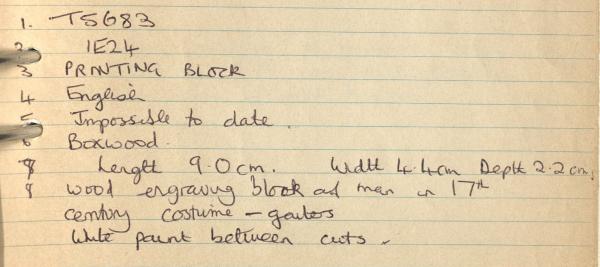 1. T5683
2 1E24
3 PRINTING BLOCK
4 English
5 Impossible to date.
6 Boxwood.
8 Length 9.0cm. Width 4.4cm Depth 2.2cm.
9 wood engraving block of man in 17th
century costume - gaiters
White paint between cuts.